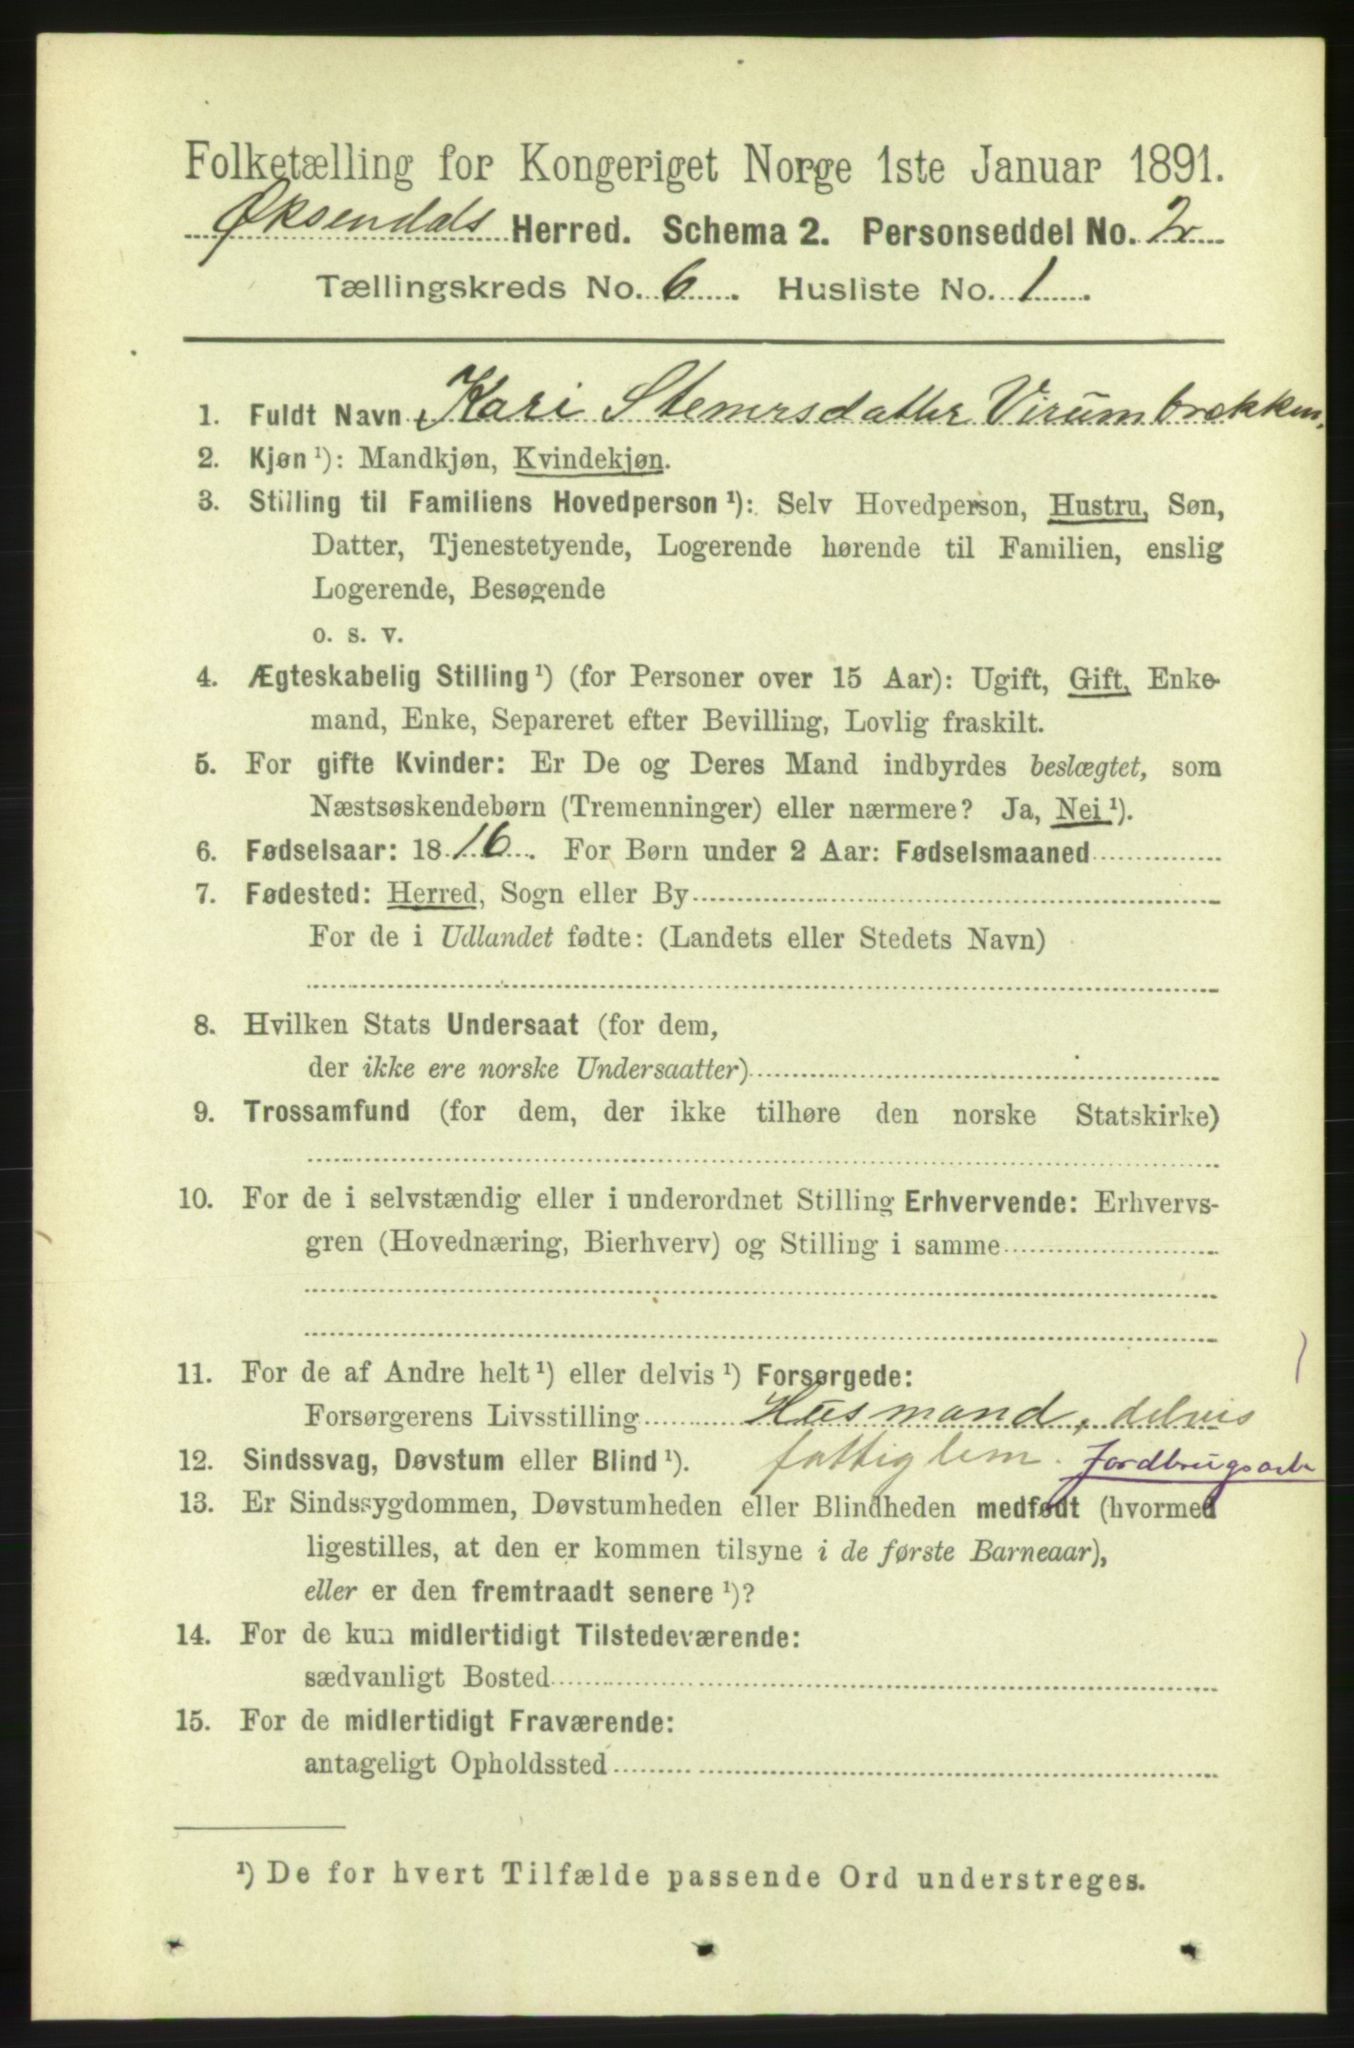 Folketælling for Kongeriget Norge 1ste Januar 1891.
Øksendals Herred. Schema 2. Personseddel No. 2
Tællingskreds No. 6. Husliste No. 1.
1. Fuldt Navn Kari Stenersdatter Virumbrækken,
2. Kjøn ¹): Mandkjøn, Kvindekjøn.
3. Stilling til Familiens Hovedperson ¹): Selv Hovedperson, Hustru, Søn,
Datter, Tjenestetyende, Logerende hørende til Familien, enslig
Logerende, Besøgende
o. s. v.
4. Ægteskabelig Stilling ¹) (for Personer over 15 Aar): Ugift, Gift, Enke-
mand, Enke, Separeret efter Bevilling, Lovlig fraskilt.
5. For gifte Kvinder: Er De og Deres Mand indbyrdes beslægtet, som
Næstsøskendebørn (Tremenninger) eller nærmere? Ja, Nei ¹).
6. Fødselsaar: 1816. For Børn under 2 Aar: Fødselsmaaned
7. Fødested: Herred, Sogn eller By
For de i Udlandet fødte: (Landets eller Stedets Navn)
8. Hvilken Stats Undersaat (for dem,
der ikke ere norske Undersaatter)
9. Trossamfund (for dem, der ikke tilhøre den norske Statskirke)
10. For de i selvstændig eller i underordnet Stilling Erhvervende: Erhvervs-
gren (Hovednæring, Bierhverv) og Stilling i samme
11. For de af Andre helt ¹) eller delvis ¹) Forsørgede:
Forsørgerens Livsstilling Husmand, delvis
12. Sindssvag, Døvstum eller Blind ¹). fattiglem. Jordbrugsarb
13. Er Sindssygdommen, Døvstumheden eller Blindheden medfødt (hvormed
ligestilles, at den er kommen tilsyne i de første Barneaar),
eller er den fremtraadt senere ¹)?
14. For de kun midlertidigt Tilstedeværende:
sædvanligt Bosted
15. For de midlertidigt Fraværende:
antageligt Opholdssted
¹) De for hvert Tilfælde passende Ord understreges.